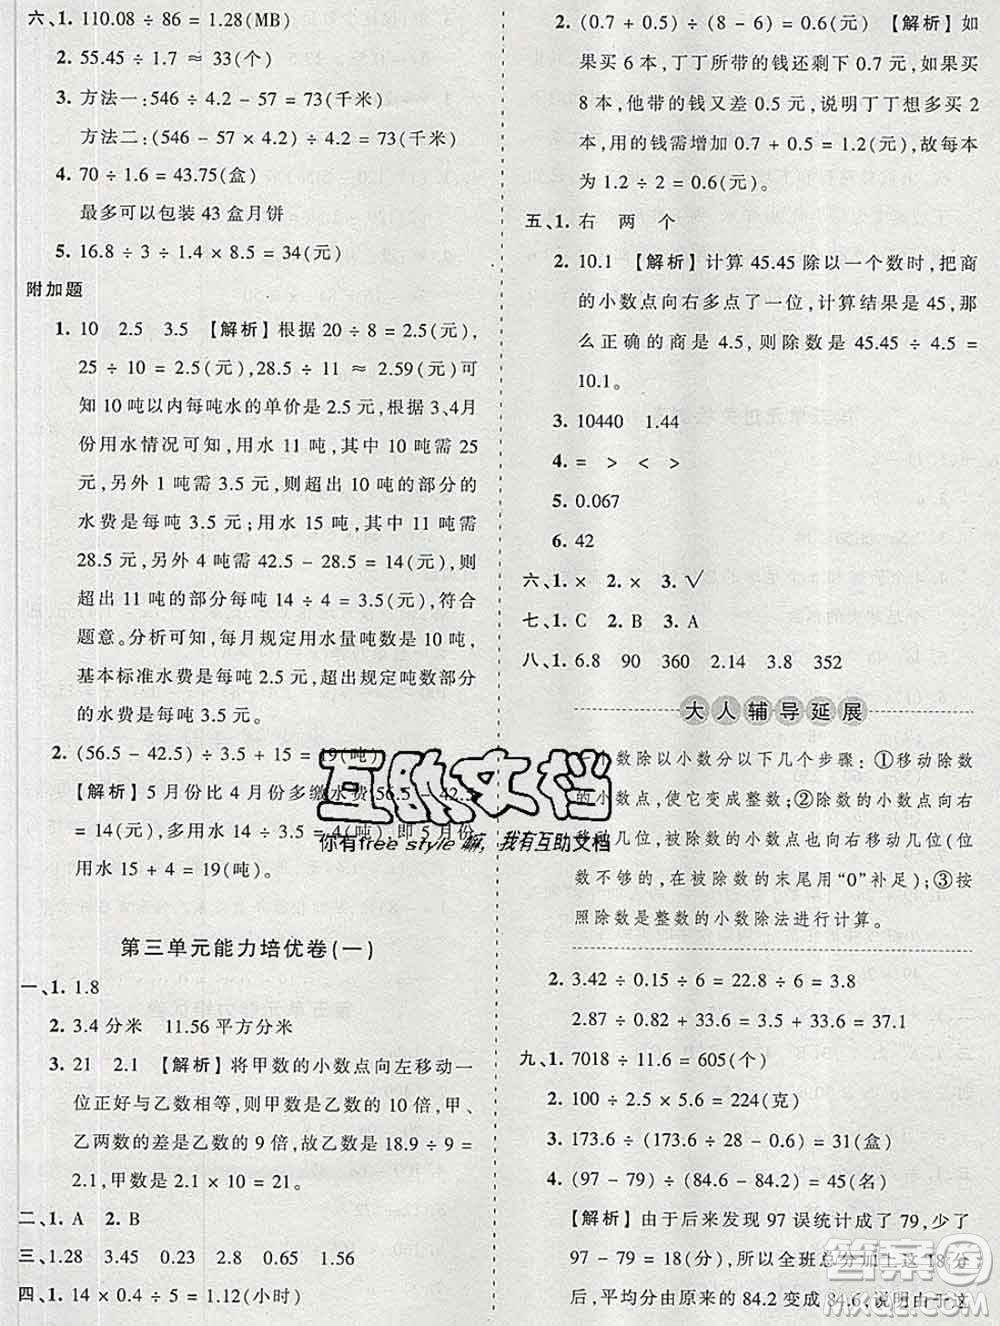 六、1. 110.08 ÷ 86 = 1.28(MB)
2. 55.45 ÷ 1.7 ≈ 33(个)
3. 方法一:546 ÷ 4.2 − 57 = 73(千米)
方法二:(546 − 57 × 4.2) ÷ 4.2 = 73(千米)
4. 70 ÷ 1.6 = 43.75(盒)
最多可以包装 43 盒月饼
5. 16.8 ÷ 3 ÷ 1.4 × 8.5 = 34(元)
附加题
1. 10 2.5 3.5 【解析】根据 20 ÷ 8 = 2.5(元),
25 ÷ 10 = 2.5(元),28.5 ÷ 11 ≈ 2.59(元)可
知 10 吨以内每吨水的单价是 2.5 元,根据 3、4月
份用水情况可知,用水 11 吨,其中 10 吨需 25
元,另外 1 吨需 3.5 元,则超出 10 吨的部分的
水费是每吨 3.5 元;用水 15 吨,其中 11 吨需
28.5 元,另外 4 吨需 42.5 − 28.5 = 14(元),则
超出 11 吨的部分每吨 14 ÷ 4 = 3.5(元),符合
题意。分析可知,每月规定用水量吨数是 10 吨,
基本标准水费是每吨 2.5 元,超出规定吨数部分
的水费是每吨 3.5 元。
2. (56.5 − 42.5) ÷ 3.5 + 15 = 19(吨)
【解析】5 月份比 4 月份多缴水费(56.5 − 42.5
= 14(元),多用水 14 ÷ 3.5 = 4(吨),即 5 月份
用水 15 + 4 = 19(吨)。
第三单元能力培优卷(一)
一、1. 1.8
2. 3.4 分米 11.56 平方分米
3. 21 2.1 【解析】将甲数的小数点向左移动一
位正好与乙数相等,则甲数是乙数的 10 倍,甲、
乙两数的差是乙数的 9 倍,故乙数是 18.9 ÷ 9 =
2.1,甲数是 2.1 × 10 = 21。
二、1. A 2. B
三、1.28 3.45 0.23 2.8 0.65 1.56
四、1. 14 × 0.4 ÷ 5 = 1.12(小时)
2. (0.7 + 0.5) ÷ (8 − 6) = 0.6(元) 【解析】如
果买 6 本,丁丁所带的钱还剩下 0.7 元,如果买
8 本,他带的钱又差 0.5 元,说明丁丁想多买 2
本,用的钱需增加 0.7 + 0.5 = 1.2(元),故每本
为 1.2 ÷ 2 = 0.6(元)。
五、1. 右 两 个
2. 10.1 【解析】计算 45.45 除以一个数时,把商
的小数点向右多点了一位,计算结果是 45,那
么正确的商是 4.5,则除数是 45.45 ÷ 4.5 =
10.1。
3. 10440 1.44
4. = > < >
5. 0.067
6. 42
六、1. × 2. × 3. √
七、1. C 2. B 3. A
八、1. 6.8 90 360 2.14 3.8 352
大人辅导延展
小数除以小数分以下几个步骤:①移动除数
的小数点,使它变成整数;②除数的小数点向右
移动几位,被除数的小数点也向右移动几位(位
数不够的,在被除数的末尾用“0”补足);③按
照除数是整数的小数除法进行计算。
2. 3.42 ÷ 0.15 ÷ 6 = 22.8 ÷ 6 = 3.8
2.87 ÷ 0.1 + 8.4 = 28.7 + 8.4 = 37.1
九、1. 7018 ÷ 11.6 = 605(个)
2. 100 ÷ 2.5 × 5.6 = 224(克)
3. 173.6 ÷ (173.6 ÷ 28 − 0.6) = 31(盒)
4. (97 − 79) ÷ (84.6 − 84.2) = 45(名)
【解析】由于后来发现 97 误统计成了 79,少了
97 − 79 = 18(分),所以全班总分加上这 18 分
后,平均分由原来的 84.2 变成 84.6,说明由于这
互助文档
你有free style 嘛,我有互助文档